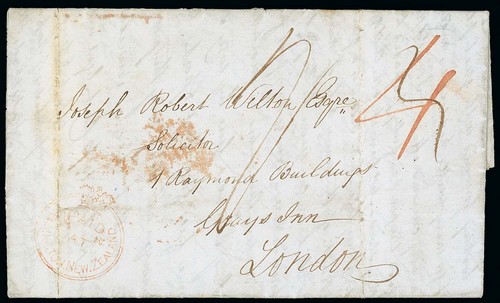 Joseph Robert Welton Esqre
Solicitor
1 Raymond Buildings
Grays Inn
London
4
PAID
NEW.ZEALAND